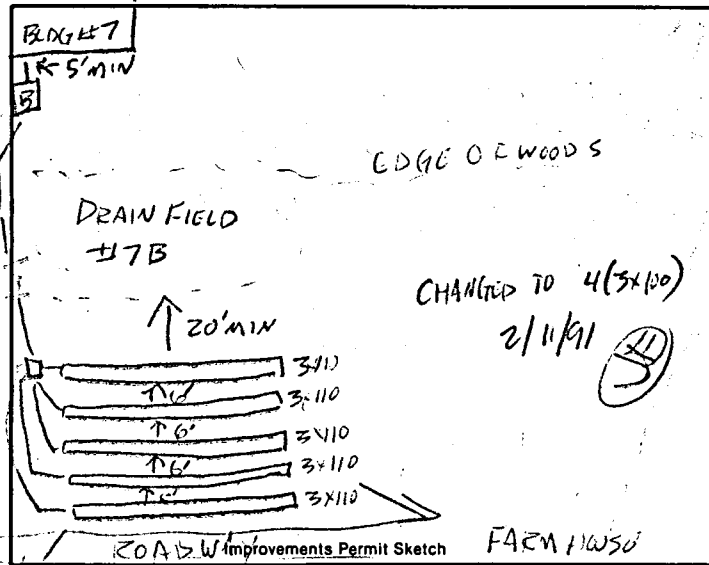 BLDG #7
5' MIN
B
EDGE OF WOODS
DRAIN FIELD
#7B
CHANGED TO 4(3x100)
2/11/91
20' MIN
3x110
6'
3x110
6'
3x110
6'
3x110
6'
3x110
Improvements Permit Sketch
FARM HOUSE